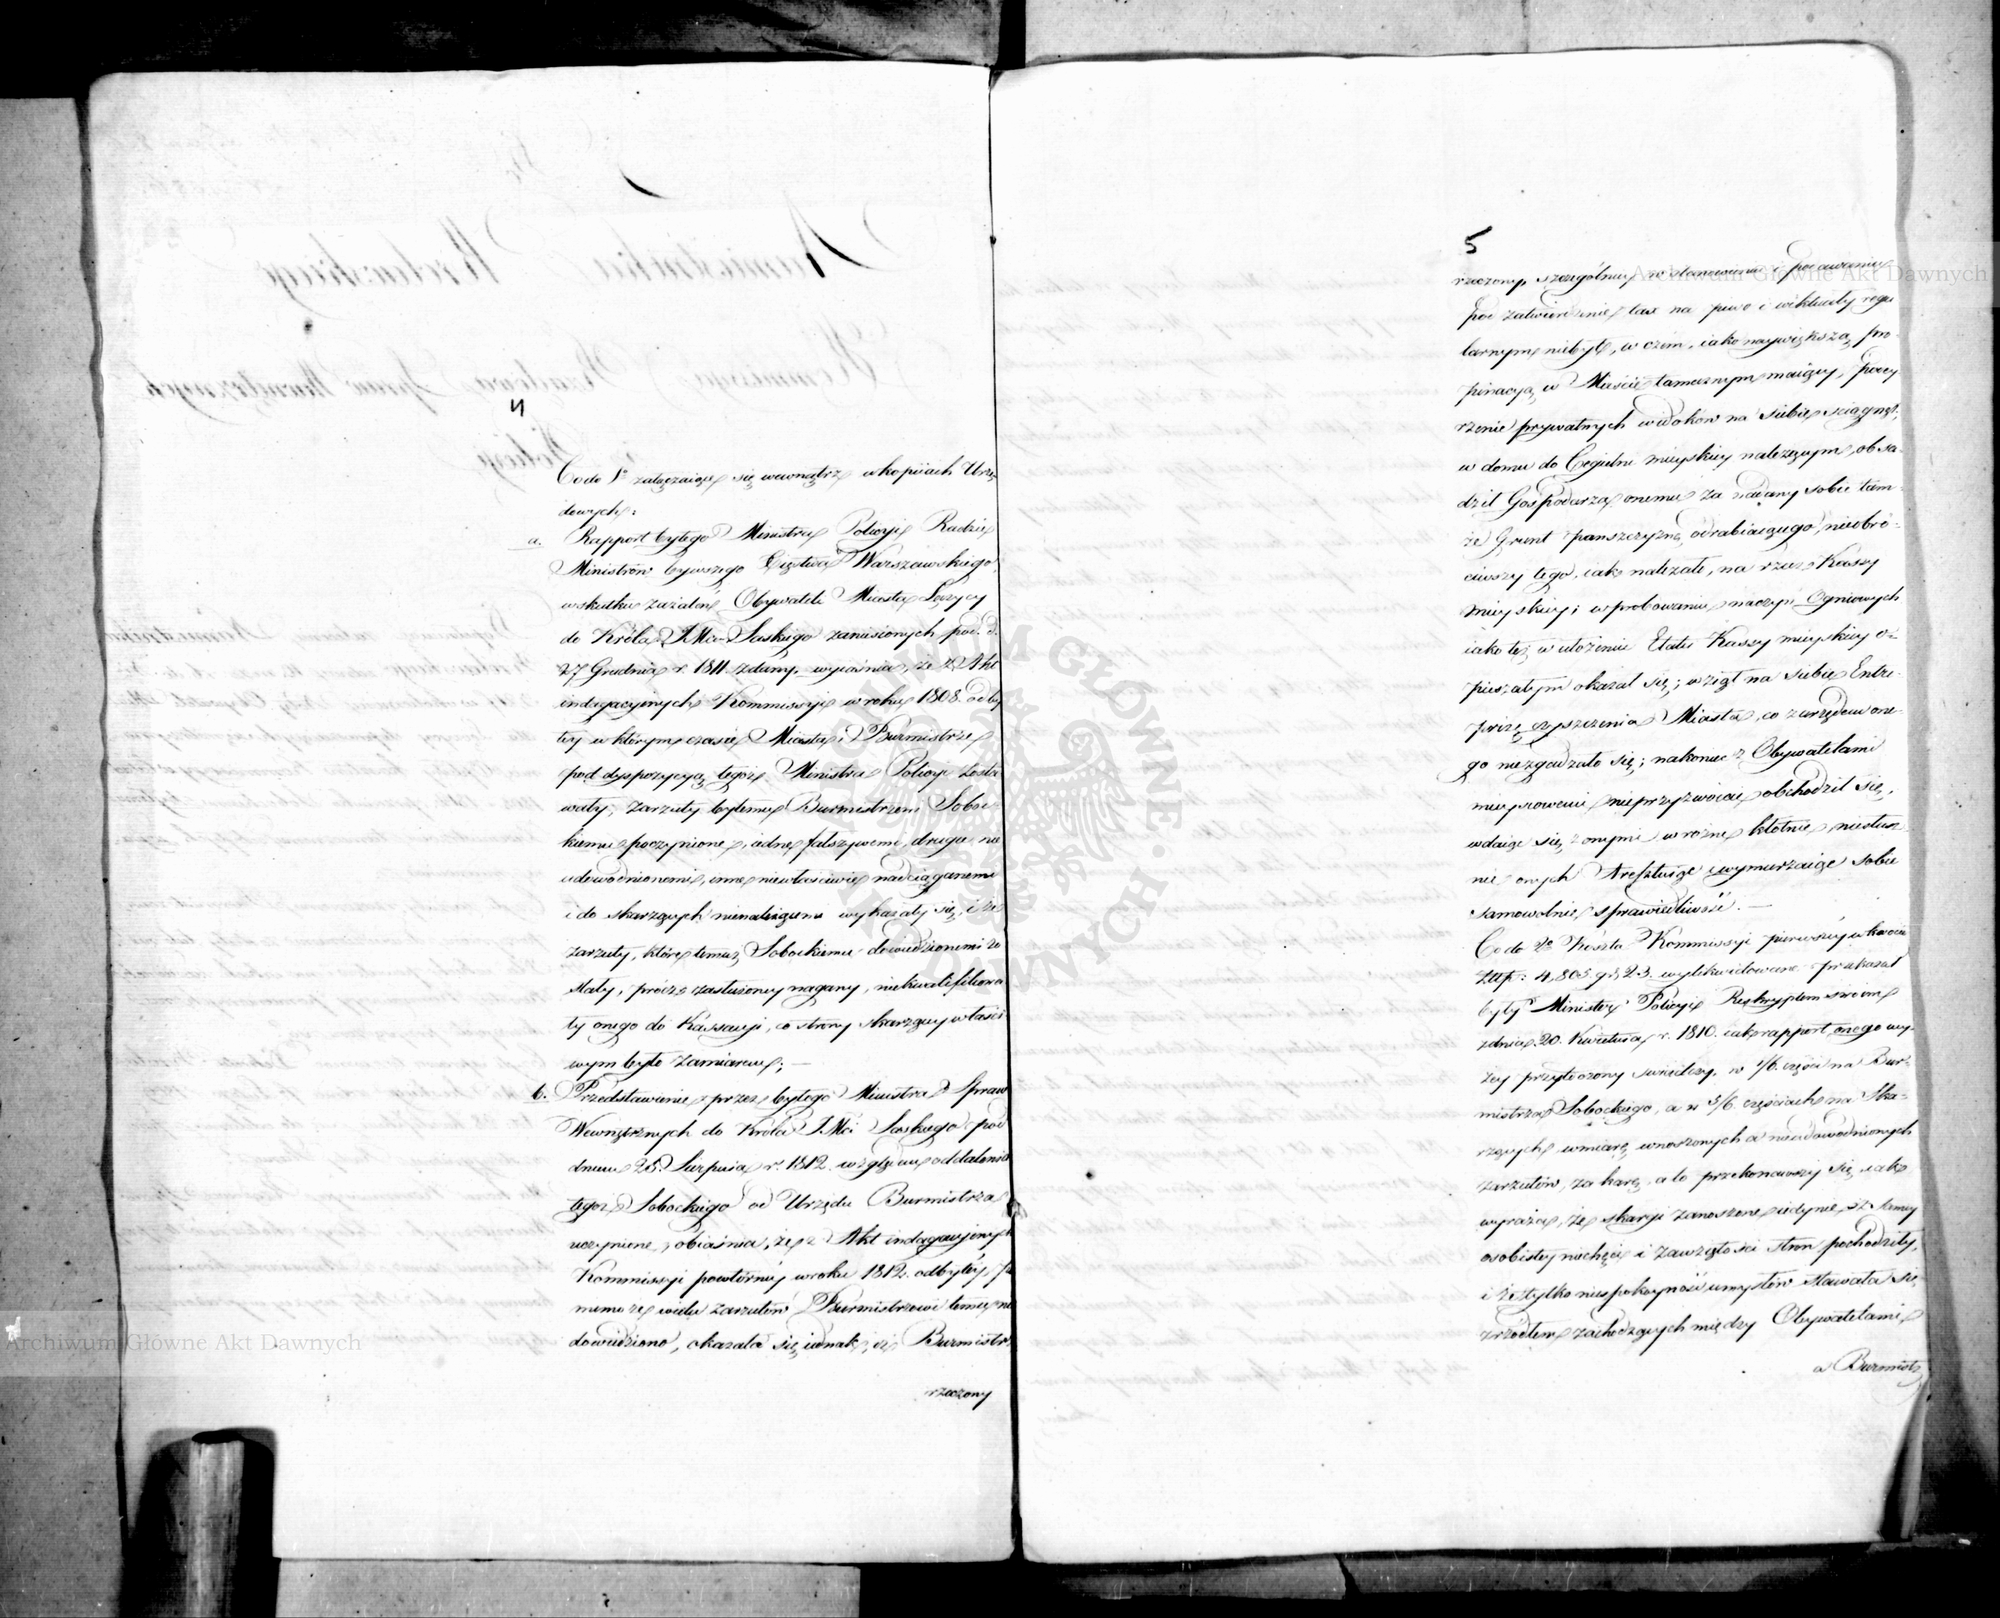 4
Co do 1º załączaiące się wewnątrz w kopiiach Urzę
dowych:
a. Rapport byłego Ministra Policyi Radzie
Ministrów bywszego Xięstwa Warszawskiego,
w skutku zażaleń Obywateli Miasta Łęczycy
do Króla JMci Saskiego zaniesionych pod d.
27 Grudnia r. 1811 zdany, wyiaśnia, że z Akt
indagacyinych Kommissyi w roku 1808. odby
tey w którym czasie Miasta i Burmistrze
pod dyspozycyą tegoż Ministra Policyi zosta
wały; zarzuty byłemu Burmistrzowi Sobo
ckiemu poczynione, iedne fałszywemi, drugie nie
udowodnionemi, inne niewłaściwie nadciąganemi
i do skarżących nienależącemi wykazały się, i że
zarzuty, które temuż Sobockiemu dowiedzionemi zo
stały, prócz zasłużoney nagany, niekwalifikowa
ły onego do Kassacyi, co strony skarżącey właści
wym było zamiarem; —
b. Przedstawienie przez byłego Ministra Spraw
Wewnętrznych do Króla JMci Saskiego pod
dniem 25. Sierpnia r. 1812. względem oddalenia
tegoż Sobockiego od Urzędu Burmistrza
uczynione, obiaśnia, że z Akt indagacyinych
Kommissyi powtórney w roku 1812. odbytey, po
mimo że wielu zarzutów Burmistrzowi temu nie
dowiedziono, okazało się iednak, iż Burmistrz
rzeczony
5
rzeczony, szczególniey w stanowieniu i podawaniu
pod zatwierdzenie tax na piwo i wiktuały regu
larnym niebył, w czém, iako naywiększą pro-
pinacyą w Mieście tamecznym maiący, podey
rzenie prywatnych widoków na siebie ściągnął;
w domu do Cegielni mieyskiey należącym, obsa-
dził Gospodarza, onemu za nadany sobie tam-
że Grunt pańszczyznę odrabiaiącego, nieobró-
ciwszy tego, iak należało, na rzecz Kassy
mieyskiey; w probowaniu naczyń Ogniowych
iako też w ułożeniu Etatu Kassy mieyskiey o-
pieszałym okazał się; wziął na siebie Entre-
prizę czyszczenia Miasta, co z urzędem one-
go niezgadzało się; nakoniec z Obywatelami
mieyscowemi nieprzyzwoicie obchodził się,
wdaiąc się z onymi w różne kłótnie, niesłusz-
nie onych Aresztuiąc i wymierzaiąc sobie
samowolnie sprawiedliwość. —
Co do 2º Koszta Kommissyi pierwszey w kwocie
Złłp: 4,805 gr 23. wylikwidowane przekazał
były Minister Policyi Reskryptem swoim
z dnia 20. Kwietnia r. 1810. iak rapport onego wy-
żey przytoczony świadczy, w 1/6. części na Bur-
mistrza Sobockiego, a w 5/6 częściach na Ska-
rżących w miarę wnoszonych a nieudowodnionych
zarzutów, za karę, a to przekonawszy się, iak
wyraża, że skargi zanoszone iedynie z samey
osobistey niechęci i zawziętości stron pochodziły,
i że tylko niespokoyność umysłów stawała się
źródłem zachodzących między Obywatelami
a Burmistrz